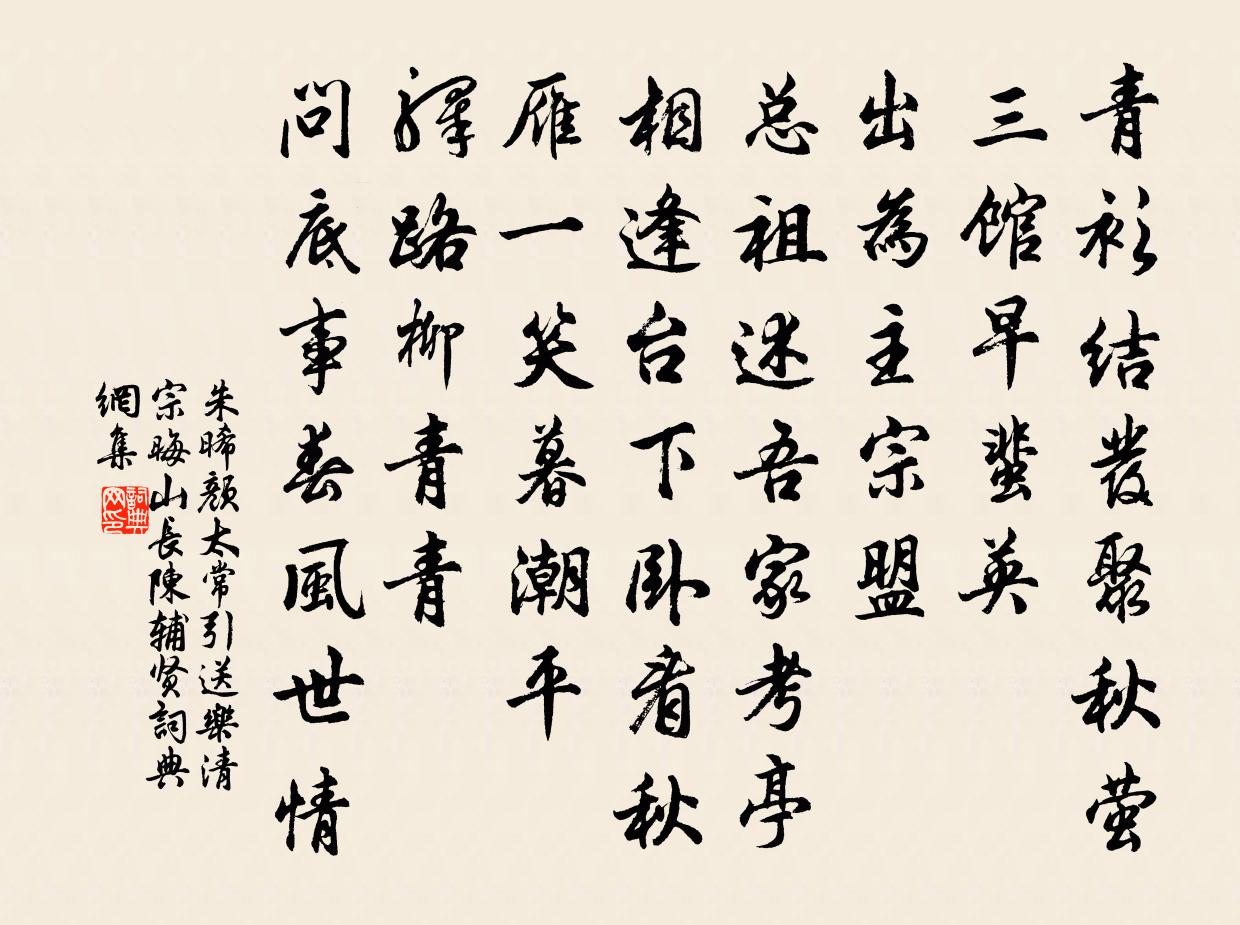 青衫结發聚秋萤
三馆早蜚英
出為主宗盟
总祖述吾家考亭
相逢台下卧看秋
雁一笑暮潮平
驿路柳青青
问底事春風世情
朱晞颜太常引送樂清
宗晦山長陳辅贤詞典
網集
詞典网印